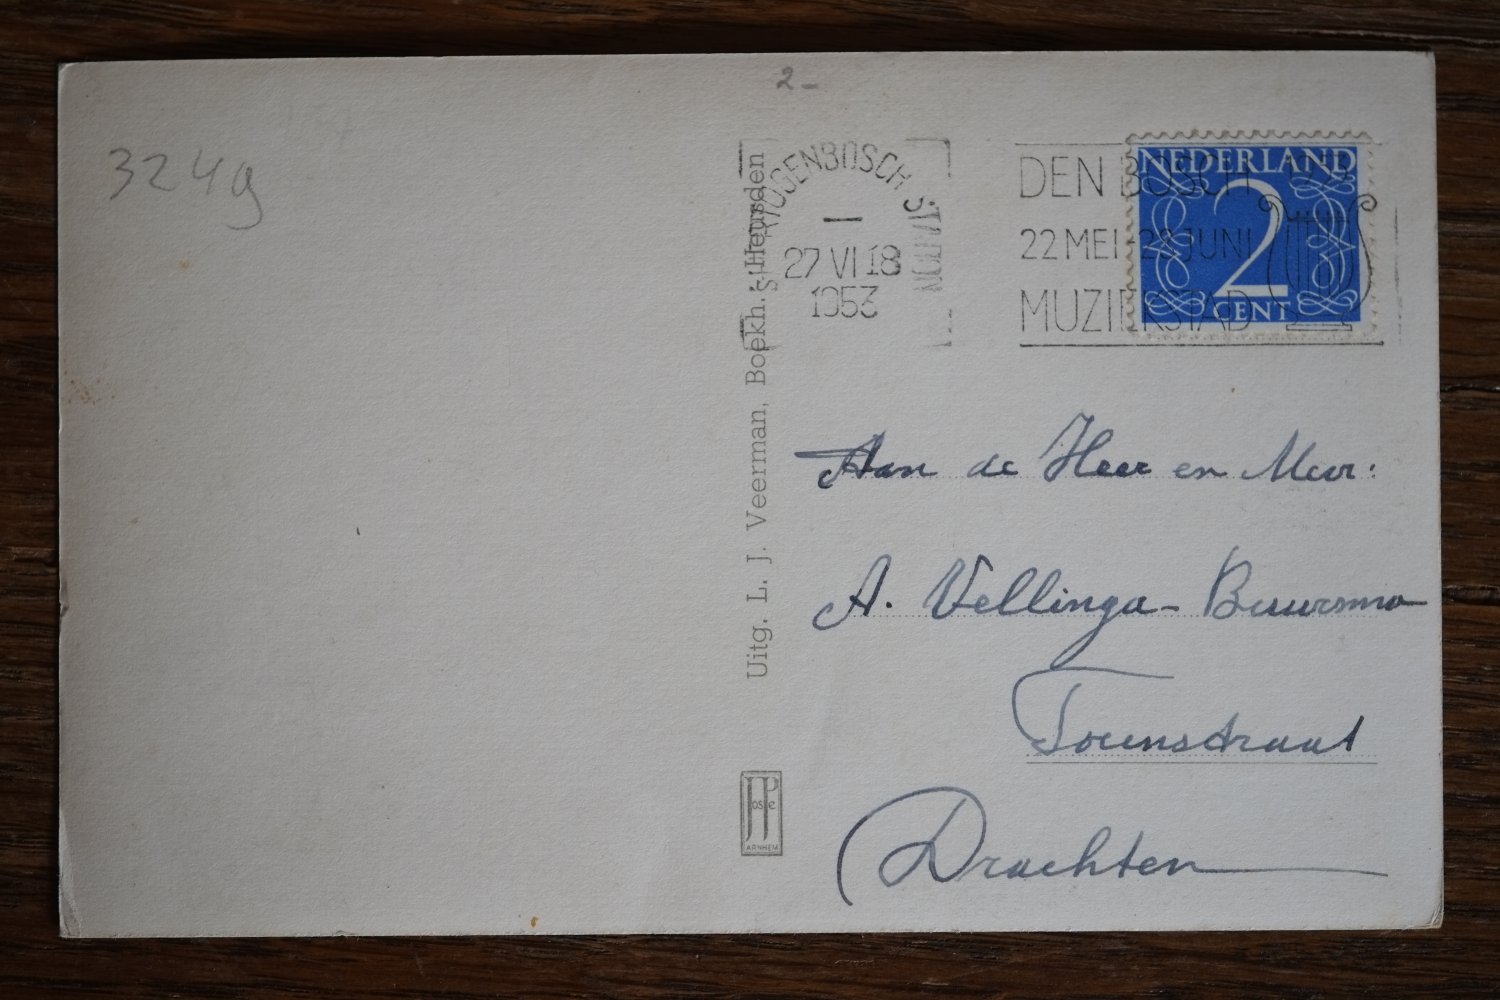 2-
324g
'S HERTOGENBOSCH STATION
27 VI 18
1953
DEN BOSCH 1953
22 MEI-28 JUNI
MUZIEKSTAD
NEDERLAND
2
CENT
Uitg. L. J. Veerman, Boekh. Heusden
Aan de Heer en Mevr:
A. Vellinga- Buursma
Drachten
ARNHEM